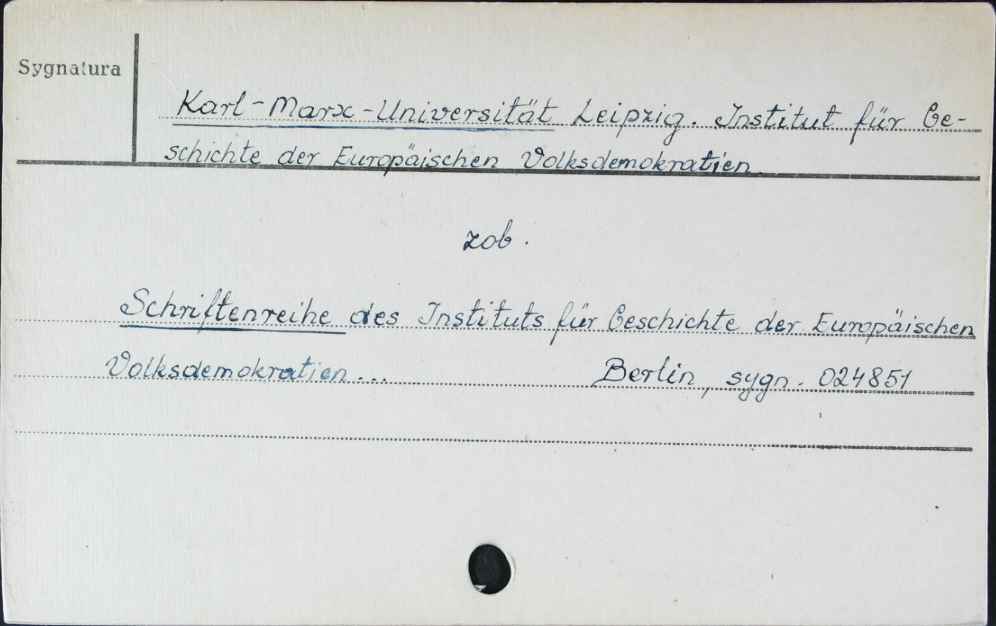 Sygnatura
Karl-Marx-Universität Leipzig. Institut für Ge-
schichte der Europäischen Volksdemokratien
zob.
Schriftenreihe des Instituts für Geschichte der Europäischen
Volksdemokratien... Berlin, sygn. 024851